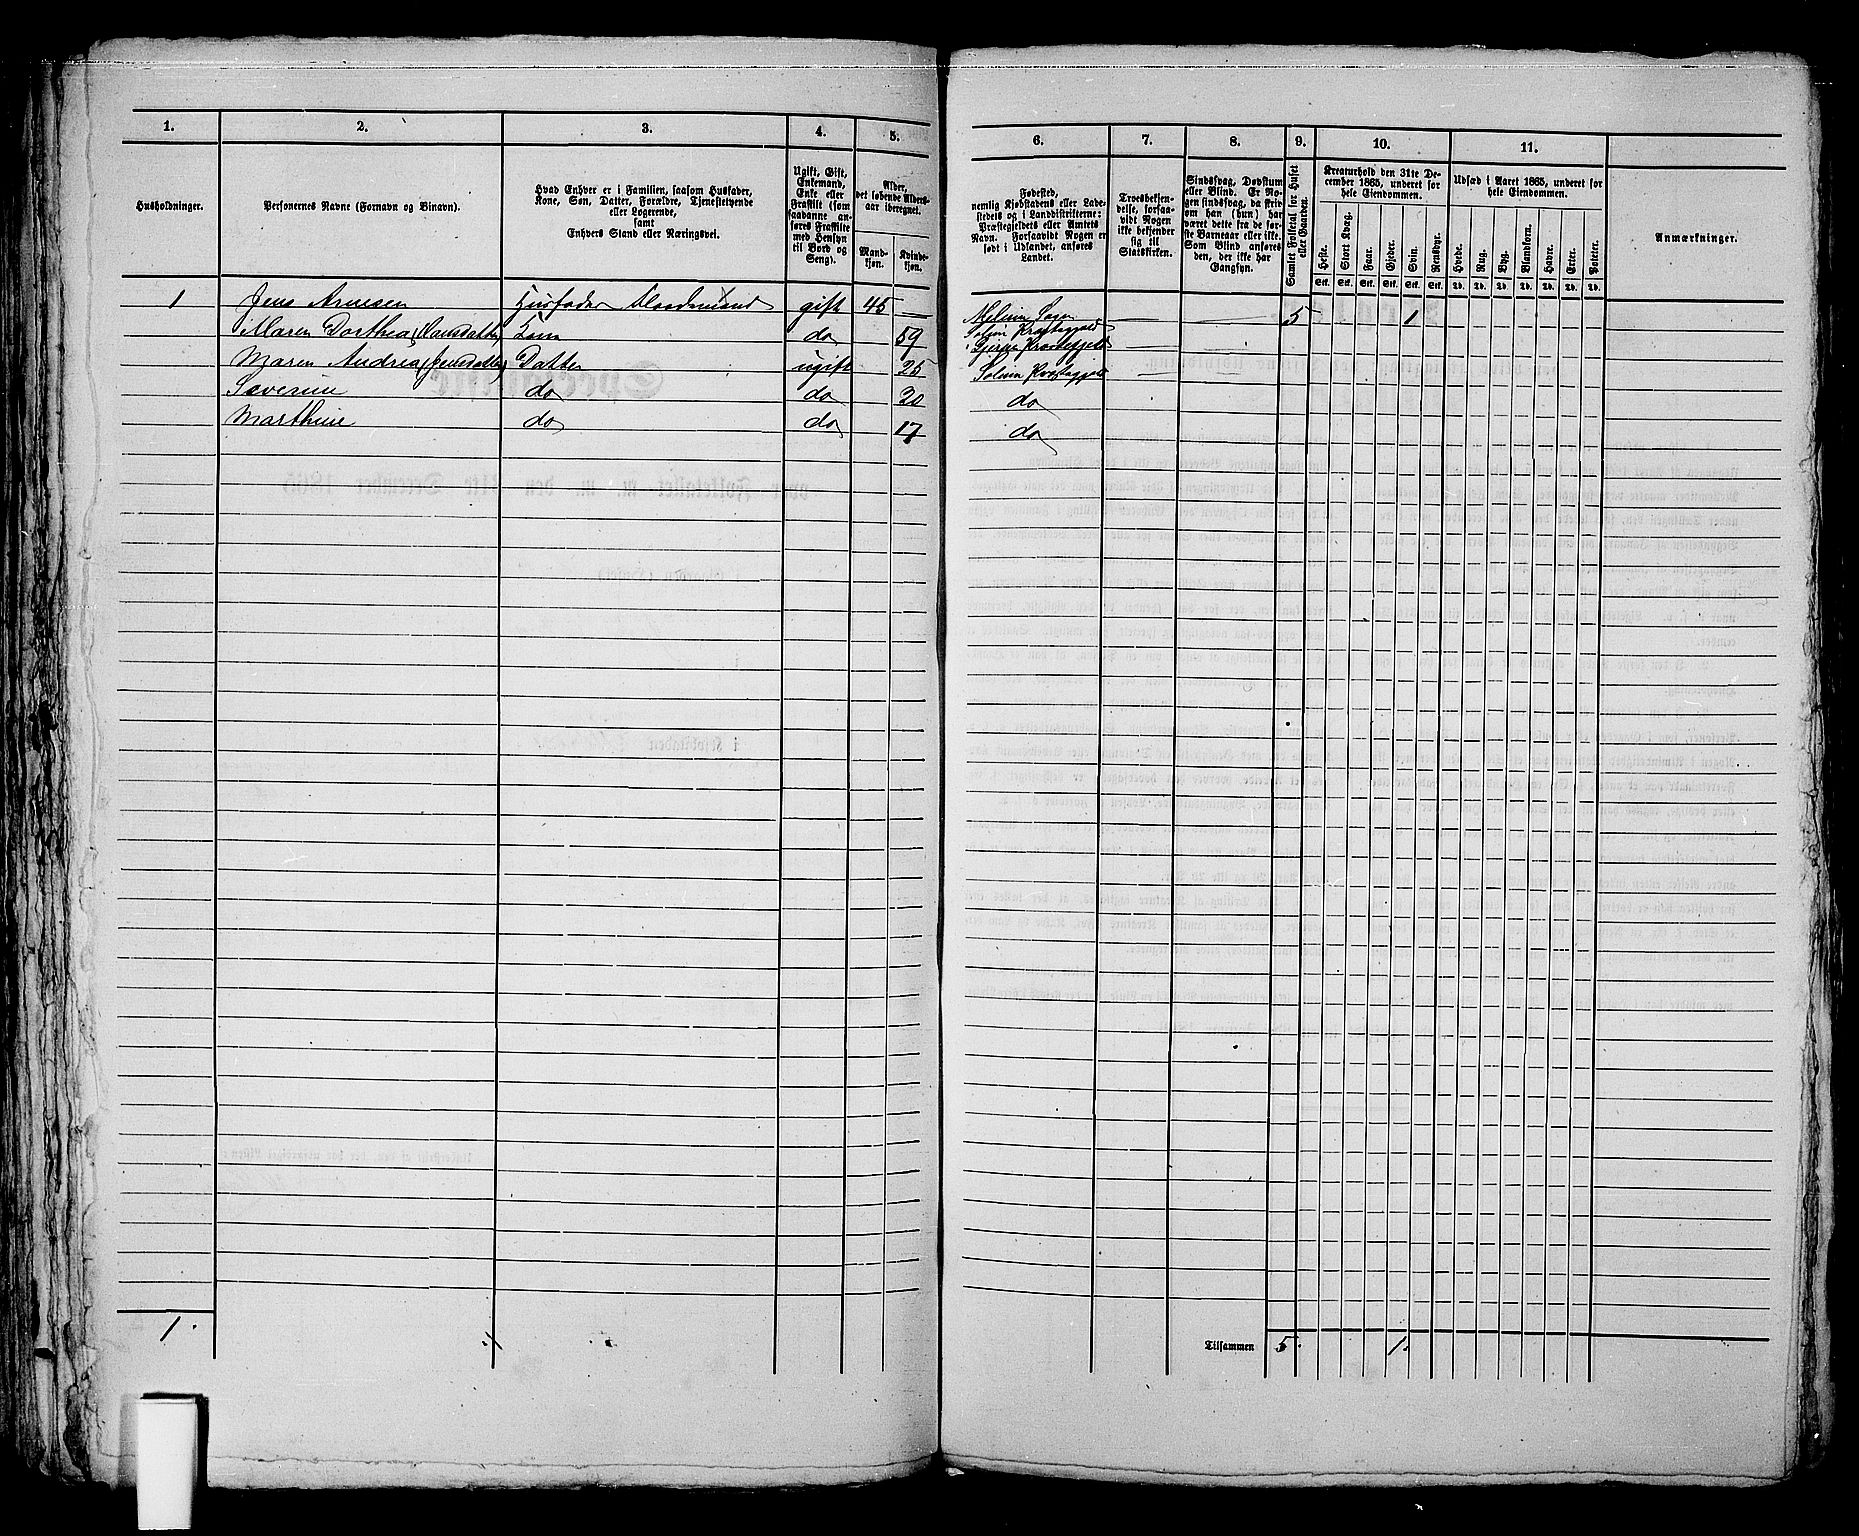 1. 2. 3. 4. 5.
Husholdninger.
Personernes Navne (Fornavn og Binavn).
Hvad Enhver er i Familien, saasom Husfader,
Kone, Søn, Datter, Forældre, Tjenestetyende
eller Logerende,
samt
Enhvers Stand eller Næringsvei.
Ugift, Gift,
Enkemand,
Enke eller
Fraskilt (som
saadanne an-
føres Fraskilte
med Hensyn
til Bord og
Seng).
Alder,
det løbende Alders-
aar iberegnet.
Mand-
kjøn.
Kvinde-
kjøn.
1 Jens Arnesen Husfader gift 45
Maren Dorthea Kone do 59
Maren Andrea (Jensdatter) Datter ugift 25
Severine do do 20
Marthine do do 17
1.
6. 7. 8. 9. 10. 11.
Fødested,
nemlig Kjøbstadens eller Lade-
stedets og i Landdistrikterne:
Præstegjeldets eller Amtets
Navn. Forsaavidt Nogen er
født i Udlandet, anføres
Landet.
Troesbekjen-
delse, forsaa-
vidt Nogen
ikke bekjender
sig til
Statskirken.
Sindssvag, Døvstum
eller Blind. Er No-
gen sindssvag, da skriv
om han (hun) har
været dette fra de før-
ste Barneaar eller ikke.
Som Blind anføres
den, der ikke har
Gangsyn.
Samlet Folketal for Huset
eller Gaarden.
Kreaturhold den 31te De-
cember 1865, underet for
hele Eiendommen.
Heste. Stort Kvæg. Faar. Gjeder. Svin. Rensdyr.
Stk. Stk. Stk. Stk. Stk. Stk.
Udsæd i Aaret 1865, underet for
hele Eiendommen.
Hvede. Rug. Byg. Blandkorn. Havre. Erter. Poteter.
Td. Td. Td. Td. Td. Td. Td.
Anmærkninger.
Melum Sogn 5 1
Solum Præstegjeld
Gjerpen Præstegjeld
Solum Præstegjeld
do
do
Tilsammen 5. 1.